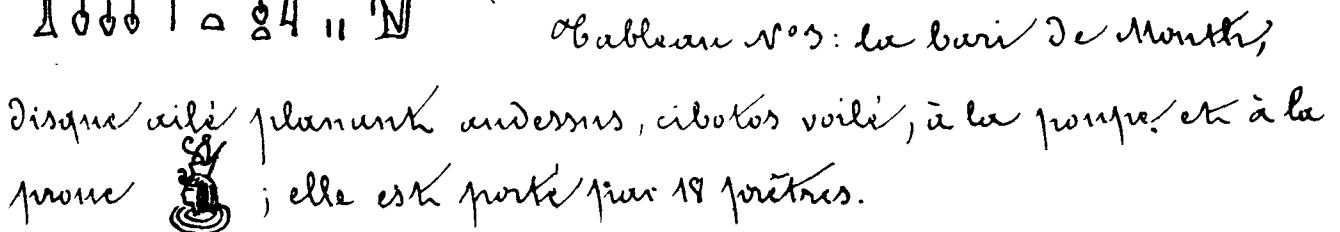 Tableau N°3: la bari de Month,
disque ailé planant audessus, cibotos voilé, à la poupe et à la
proue ; elle est porté par 18 prêtres.